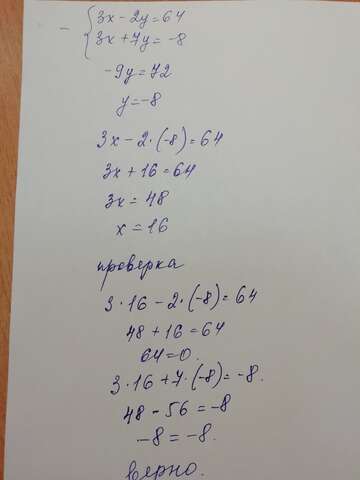 - { 3x - 2y = 64
3x + 7y = -8
-9y = 72
y = -8
3x - 2 · (-8) = 64
3x + 16 = 64
3x = 48
x = 16
проверка
3 · 16 - 2 · (-8) = 64
48 + 16 = 64
64 = 0.
3 · 16 + 7 · (-8) = -8.
48 - 56 = -8
-8 = -8.
верно.